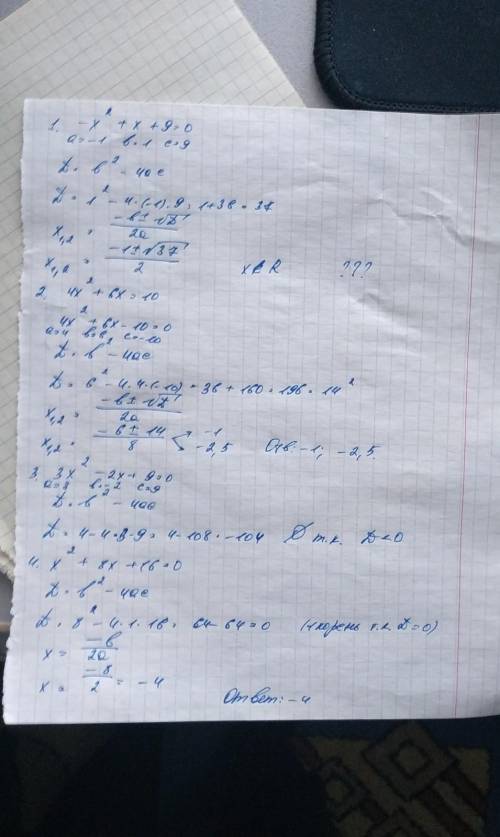 1. -x² + x + 9 = 0
a = -1 b = 1 c = 9
D = b² - 4ac
D = 1² - 4·(-1)·9 = 1+36 = 37
x₁,₂ = (-b ± √D)/2a
x₁,₂ = (-1 ± √37)/2 x∉R ???
2. 4x² + 6x = 10
4x² + 6x - 10 = 0
a=4 b=6 c=-10
D = b² - 4ac
D = 6² - 4·4·(-10) = 36 + 160 = 196 = 14²
x₁,₂ = (-b ± √D)/2a
x₁,₂ = (-6 ± 14)/8 < -1 -2,5 Отв -1; -2,5.
3. 3x² - 2x + 9 = 0
a=3 b=-2 c=9
D = b² - 4ac
D = 4 - 4·3·9 = 4 - 108 = -104 ∅ т.к. D<0
4. x² + 8x + 16 = 0
D = b² - 4ac
D = 8² - 4·1·16 = 64-64=0 (1 корень т.к. D=0)
x = -b/2a
x = -8/2 = -4
Ответ: -4